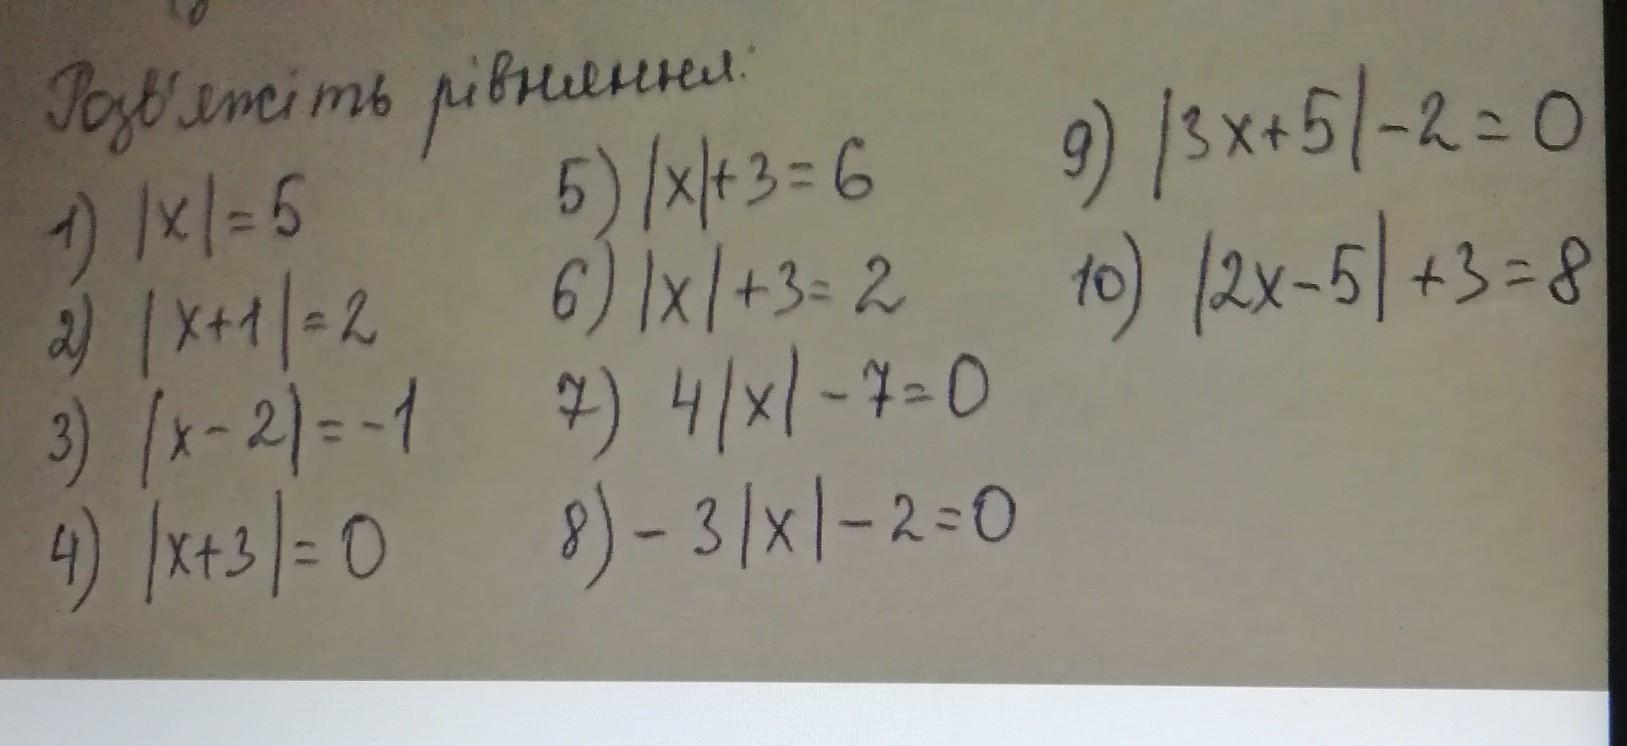 Розв'яжіть рівняння:
1) |x| = 5
2) |x+1| = 2
3) |x-2| = -1
4) |x+3| = 0
5) |x|+3 = 6
6) |x|+3 = 2
7) 4|x| - 7 = 0
8) - 3|x| - 2 = 0
9) |3x+5| - 2 = 0
10) |2x-5| + 3 = 8